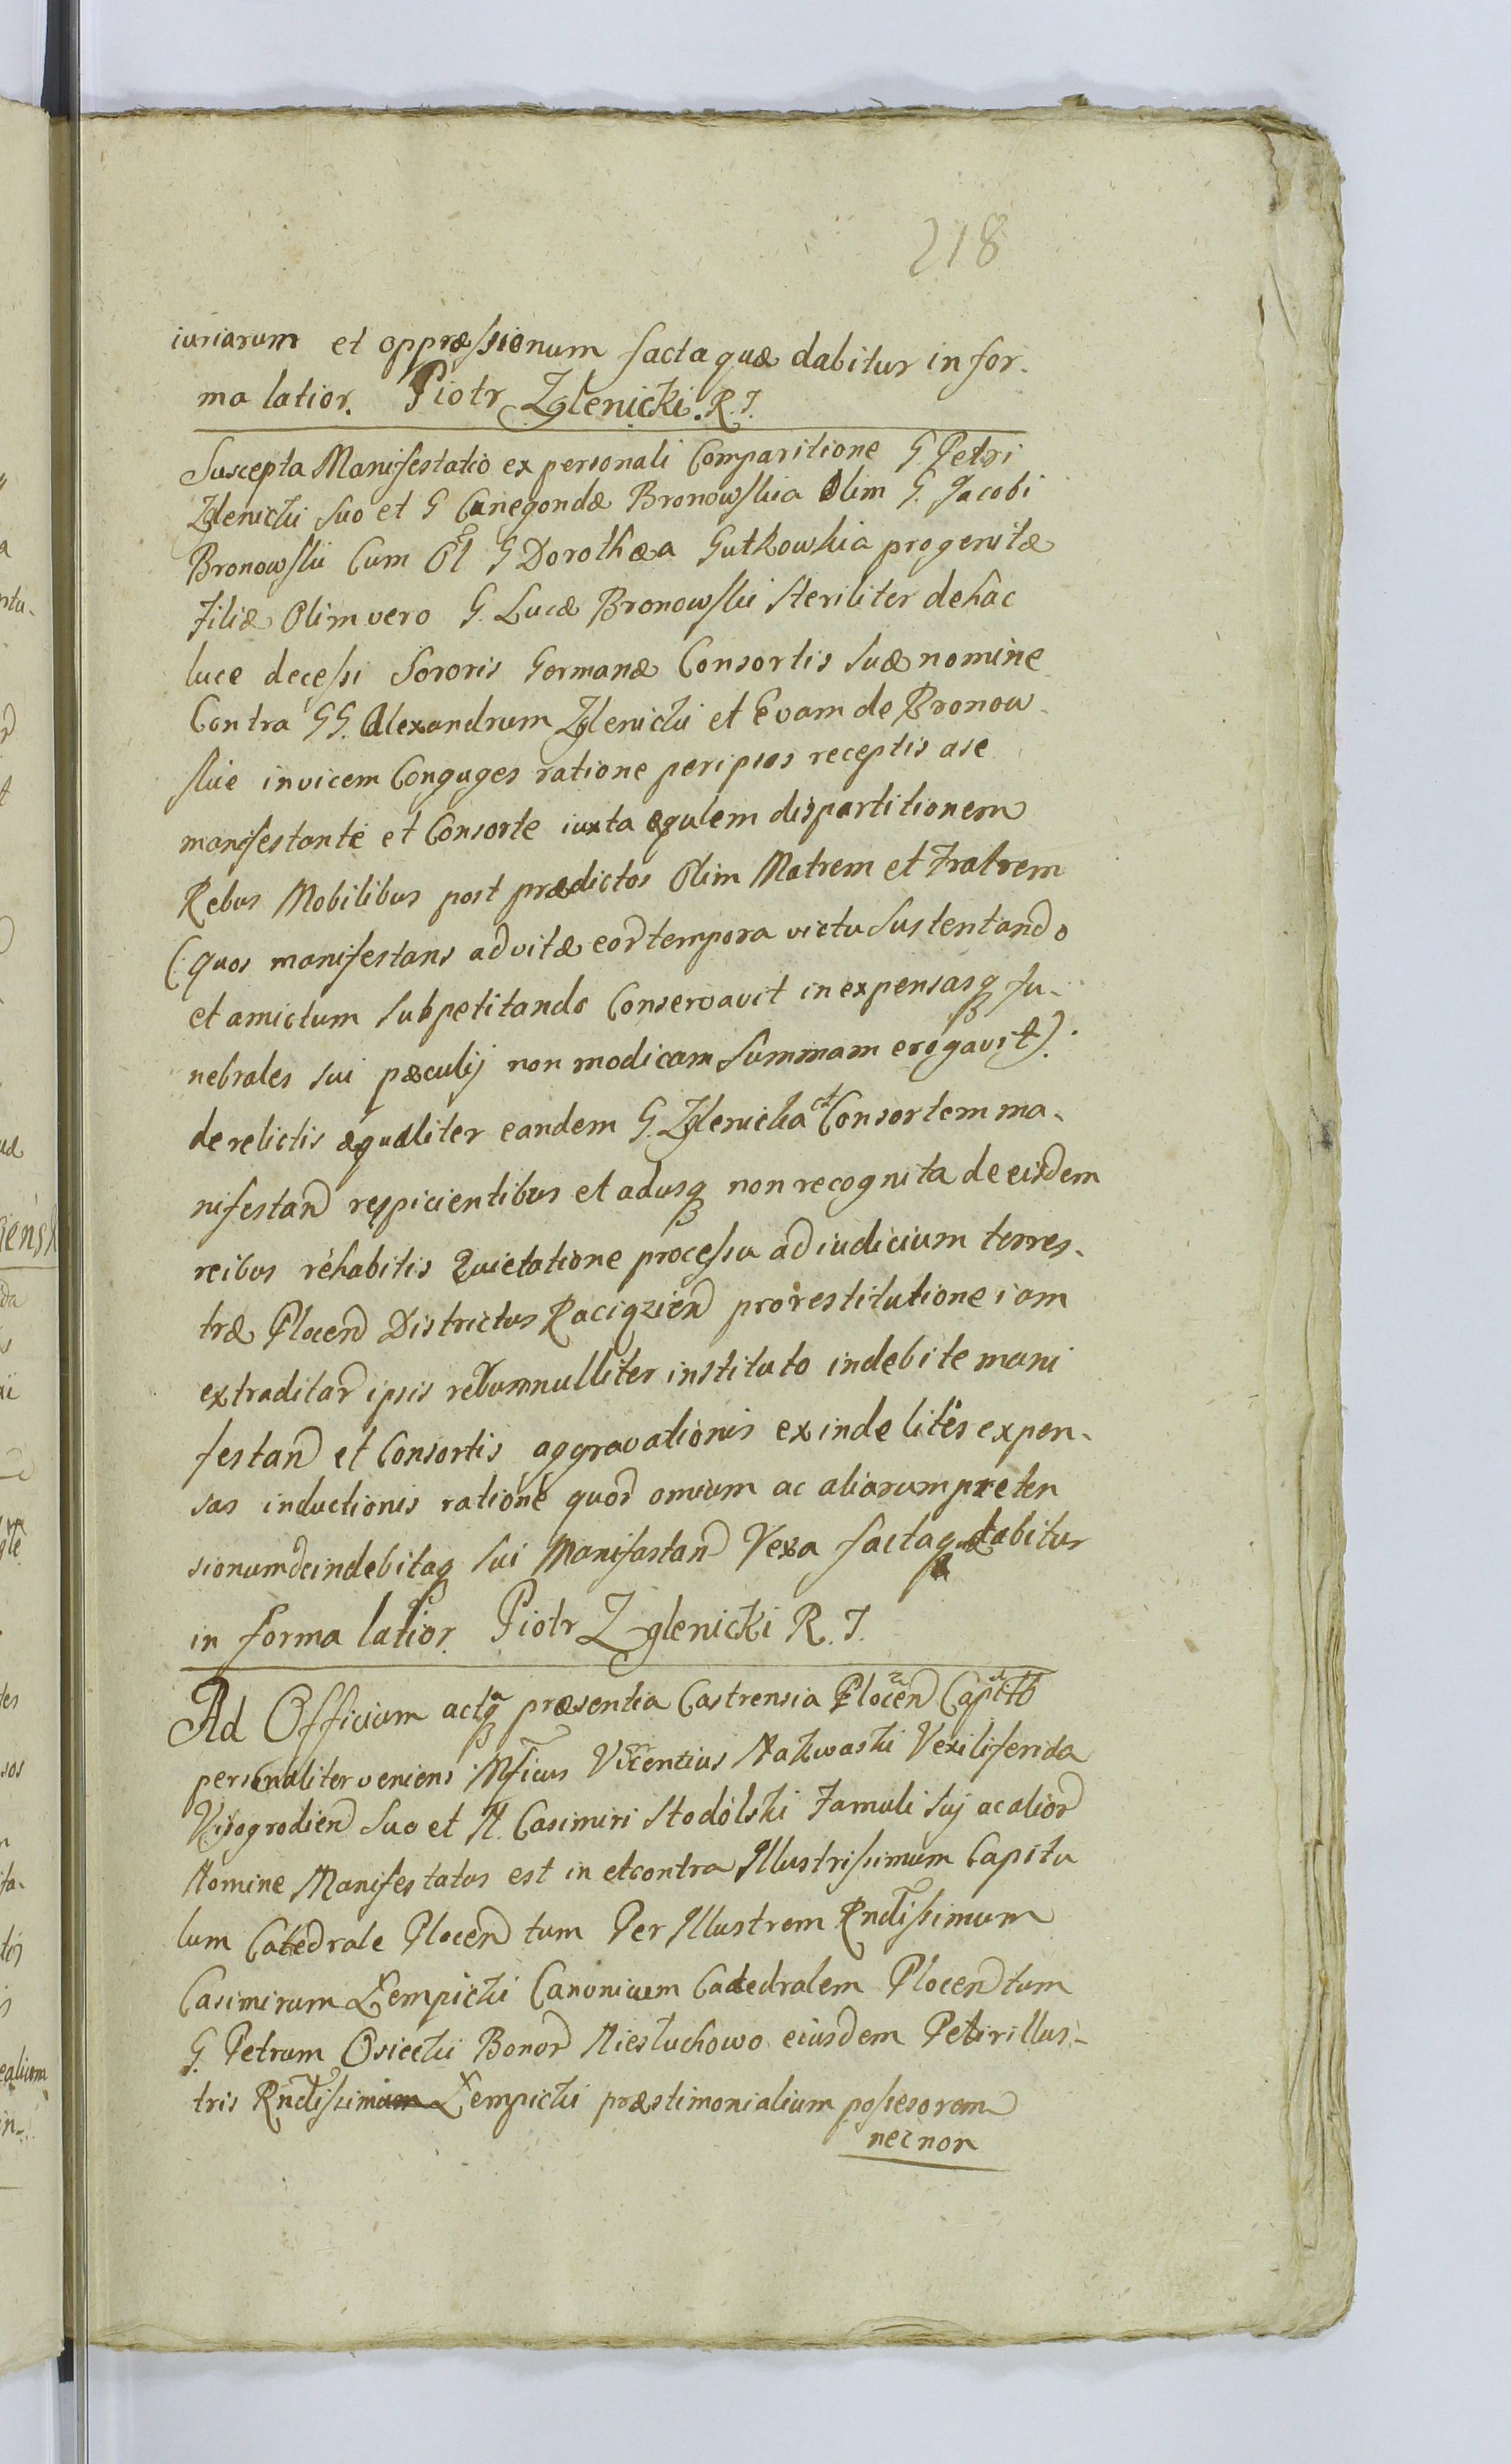 218
iuriarum et oppræssionum facta quæ dabitur in for-
ma latior. Piotr Zglenicki. R. J.
Suscepta Manifestatio ex personali Comparitione G Petri
Zglenicki suo et G Cunegondæ Bronowskia Olim G. Jacobi
Bronowski Cum Ol G Dorothæa Gutkowskia progenitæ
Filiæ Olim vero G. Lucæ Bronowski steriliter de hac
luce decessi Sororis Germanæ Consortis suæ nomine
Contra GG. Alexandrum Zglenicki et Evam de Bronow-
skie invicem Conguges ratione per ipsos receptis a se
manifestante et Consorte iuxta æqulem dispartitionem
Rebus Mobilibus post prædictos Olim Matrem et Fratrem
(: quos manifestans ad vitæ eor tempora victu sustentando
et amictum subpetitando Conservavit in expensasq fu-
nebrales sui pæculij non modicam summam erogavit).
derelictis æqualiter eandem G. Zglenicka et Consortem ma-
nifestan respicientibus et adusq non recognita de eisdem
reibus rehabitis Quietatione processu ad iudicium terres-
træ Plocen Districtus Raciązien pro restitutione iam
extraditar ipsis rerum nulliter instituto indebite mani
festan et Consortis aggravationis exinde litis expen-
sas inductionis ratione quor omium ac aliarum preten
sionum de indebitaq sui Manifastan Vexa facta quæ dabitur
in forma latior. Piotr Zglenicki R. J.
Ad Officium actaq præsentia Castrensia Plocen Capit
personaliter veniens Mficus Vicentius Nakwaski Vexiliferida
Visogrodien suo et N. Casimiri Stodólski Famuli suj ac alior
Nomine Manifestatus est in et contra Illustrissimum Capitu
lum Catedrale Plocen tum Per Illustrem Rndissimum
Casimirum Łempicki Canonicum Catedralem Plocen tum
G. Petrum Osiecki Bonor Niesluchowo eiusdem Perillus-
tris Rndissim Łempicki præstimonialium possesorem
necnon